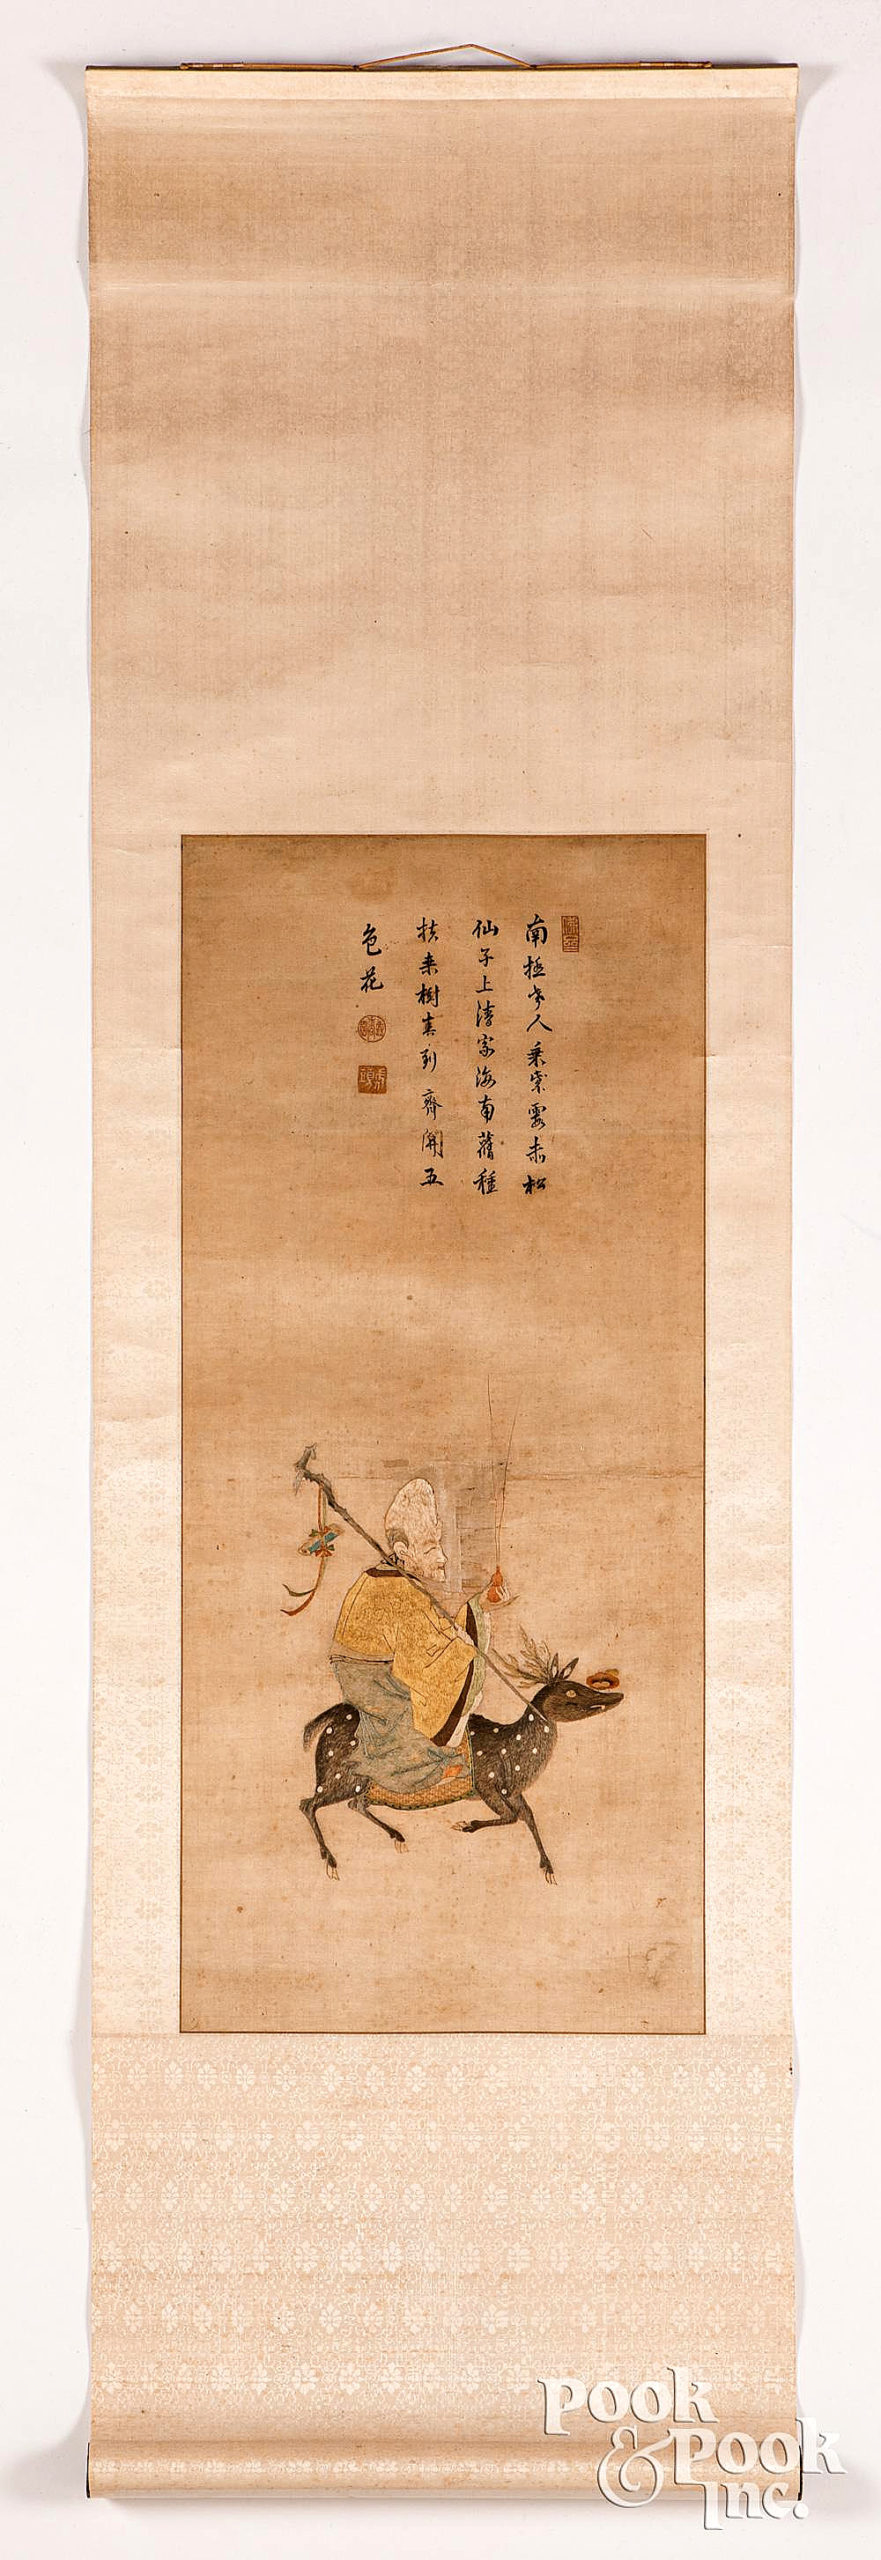 南極老人乘紫霞赤松
仙子上清家海南舊種
扶来樹真到齊開五
色花
Pook
& Pook
Inc.